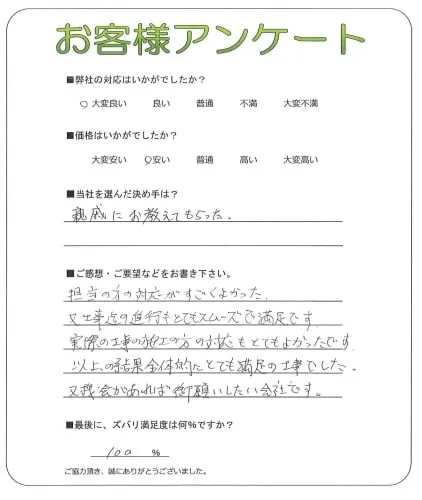 お客様アンケート
■弊社の対応はいかがでしたか？
○大変良い 良い 普通 不満 大変不満
■価格はいかがでしたか？
大変安い ○安い 普通 高い 大変高い
■当社を選んだ決め手は？
親戚にお教えてもらった。
■ご感想・ご要望などをお書き下さい。
担当の方の対応がすごくよかった。
又工事迄の進行もとてもスムーズで満足です。
実際の工事の施工の方の対応もとてもよかったです。
以上の結果全体的にとても満足の工事でした。
又機会があれば御願いしたい会社です。
■最後に、ズバリ満足度は何％ですか？
100 ％
ご協力頂き、誠にありがとうございました。